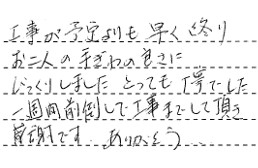 工事が予定よりも早く終り
お二人の手ぎわの良さに
びっくりしました とっても丁寧でした
一週間前倒しで工事までして頂き
感謝です ありがとう...